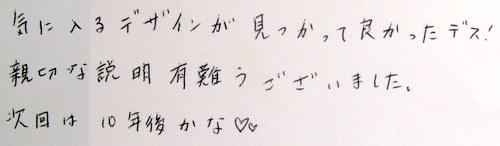 気に入るデザインが見つかって良かったデス!
親切な説明有難うございました。
次回は10年後かな♡♡